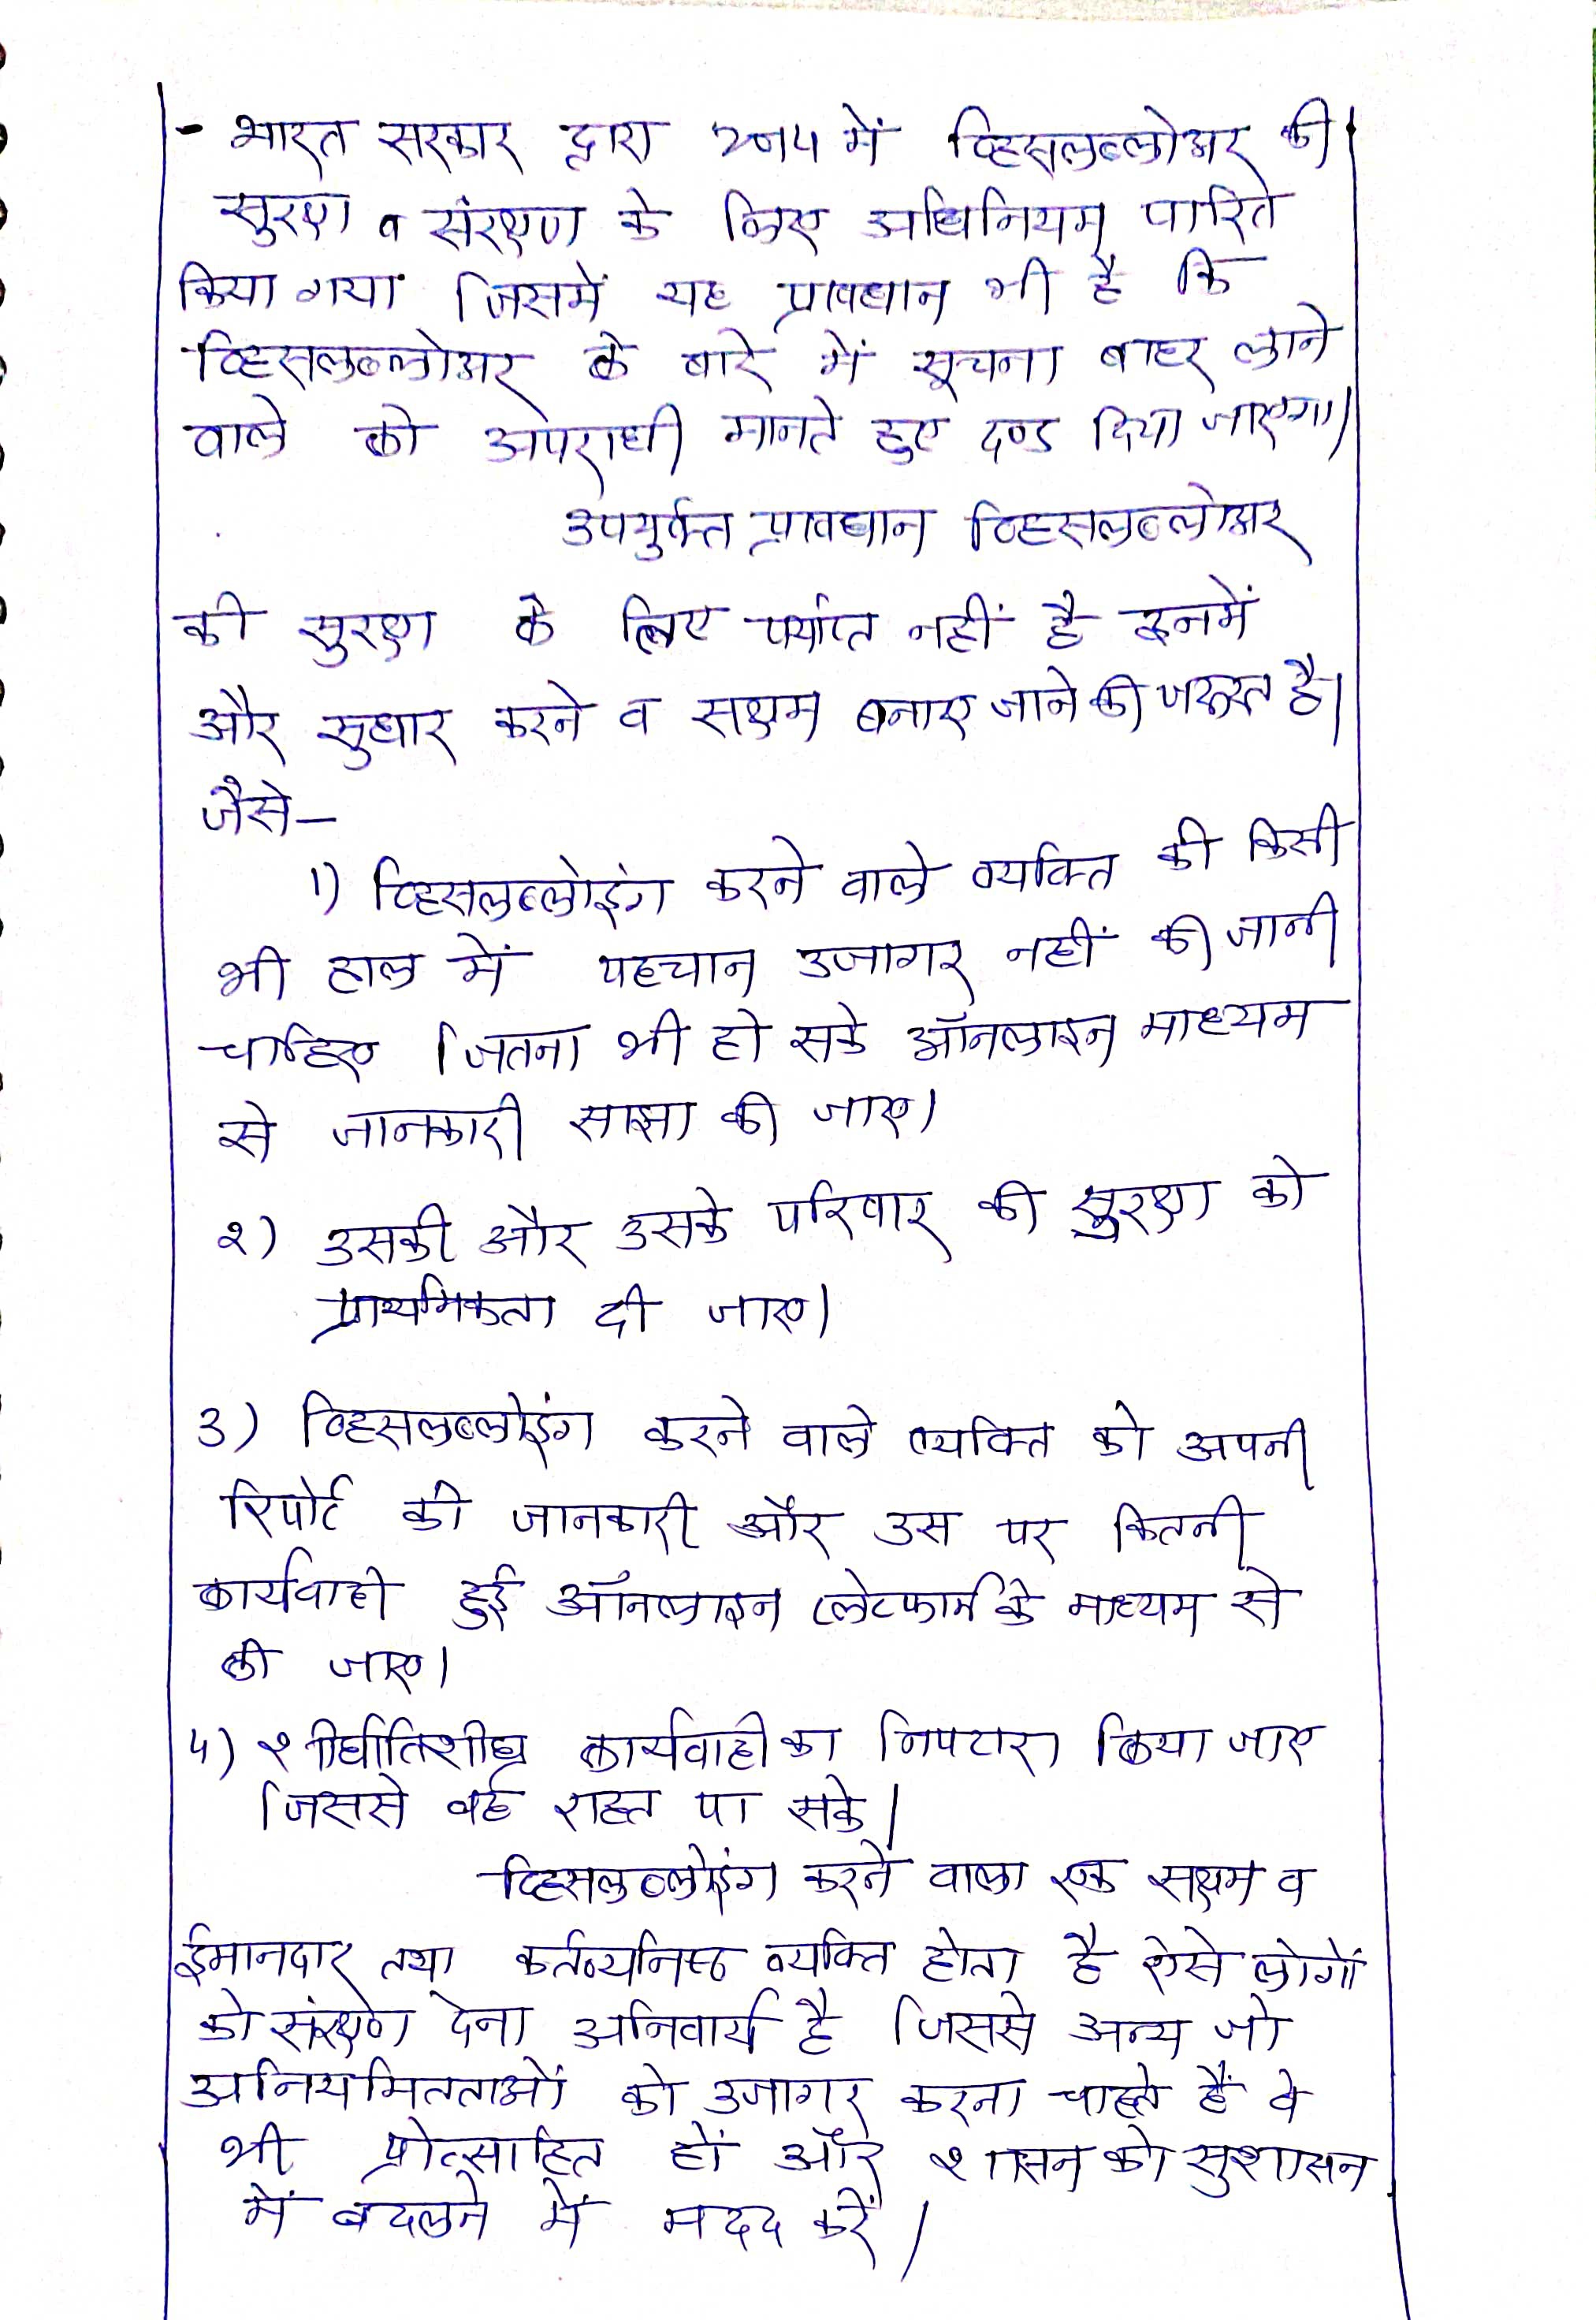 - भारत सरकार द्वारा 2014 में व्हिसलब्लोअर की
सुरक्षा व संरक्षण के लिए अधिनियम पारित
किया गया जिसमें यह प्रावधान भी है कि
व्हिसलब्लोअर के बारे में सूचना बाहर लाने
वाले को अपराधी मानते हुए दण्ड दिया जाएगा।
उपर्युक्त प्रावधान व्हिसलब्लोअर
की सुरक्षा के लिए पर्याप्त नहीं है इनमें
और सुधार करने व सक्षम बनाए जाने की जरूरत है।
जैसे-
1) व्हिसलब्लोइंग करने वाले व्यक्ति की किसी
भी हाल में पहचान उजागर नहीं की जानी
चाहिए जितना भी हो सके ऑनलाइन माध्यम
से जानकारी साझा की जाए।
२) उसकी और उसके परिवार की सुरक्षा को
प्राथमिकता दी जाए।
3) व्हिसलब्लोइंग करने वाले व्यक्ति को अपनी
रिपोर्ट की जानकारी और उस पर कितनी
कार्यवाही हुई ऑनलाइन प्लेटफार्म के माध्यम से
की जाए।
4) शीर्घातिशीघ्र कार्यवाही का निपटारा किया जाए
जिससे वह राहत पा सके।
व्हिसलब्लोइंग करने वाला एक सक्षम व
ईमानदार तथा कर्तव्यनिष्ठ व्यक्ति होता है ऐसे लोगों
को संरक्षण देना अनिवार्य है जिससे अन्य जो
अनियमितताओं को उजागर करना चाहते हैं वे
भी प्रोत्साहित हों और शासन को सुशासन
में बदलने में मदद करें।